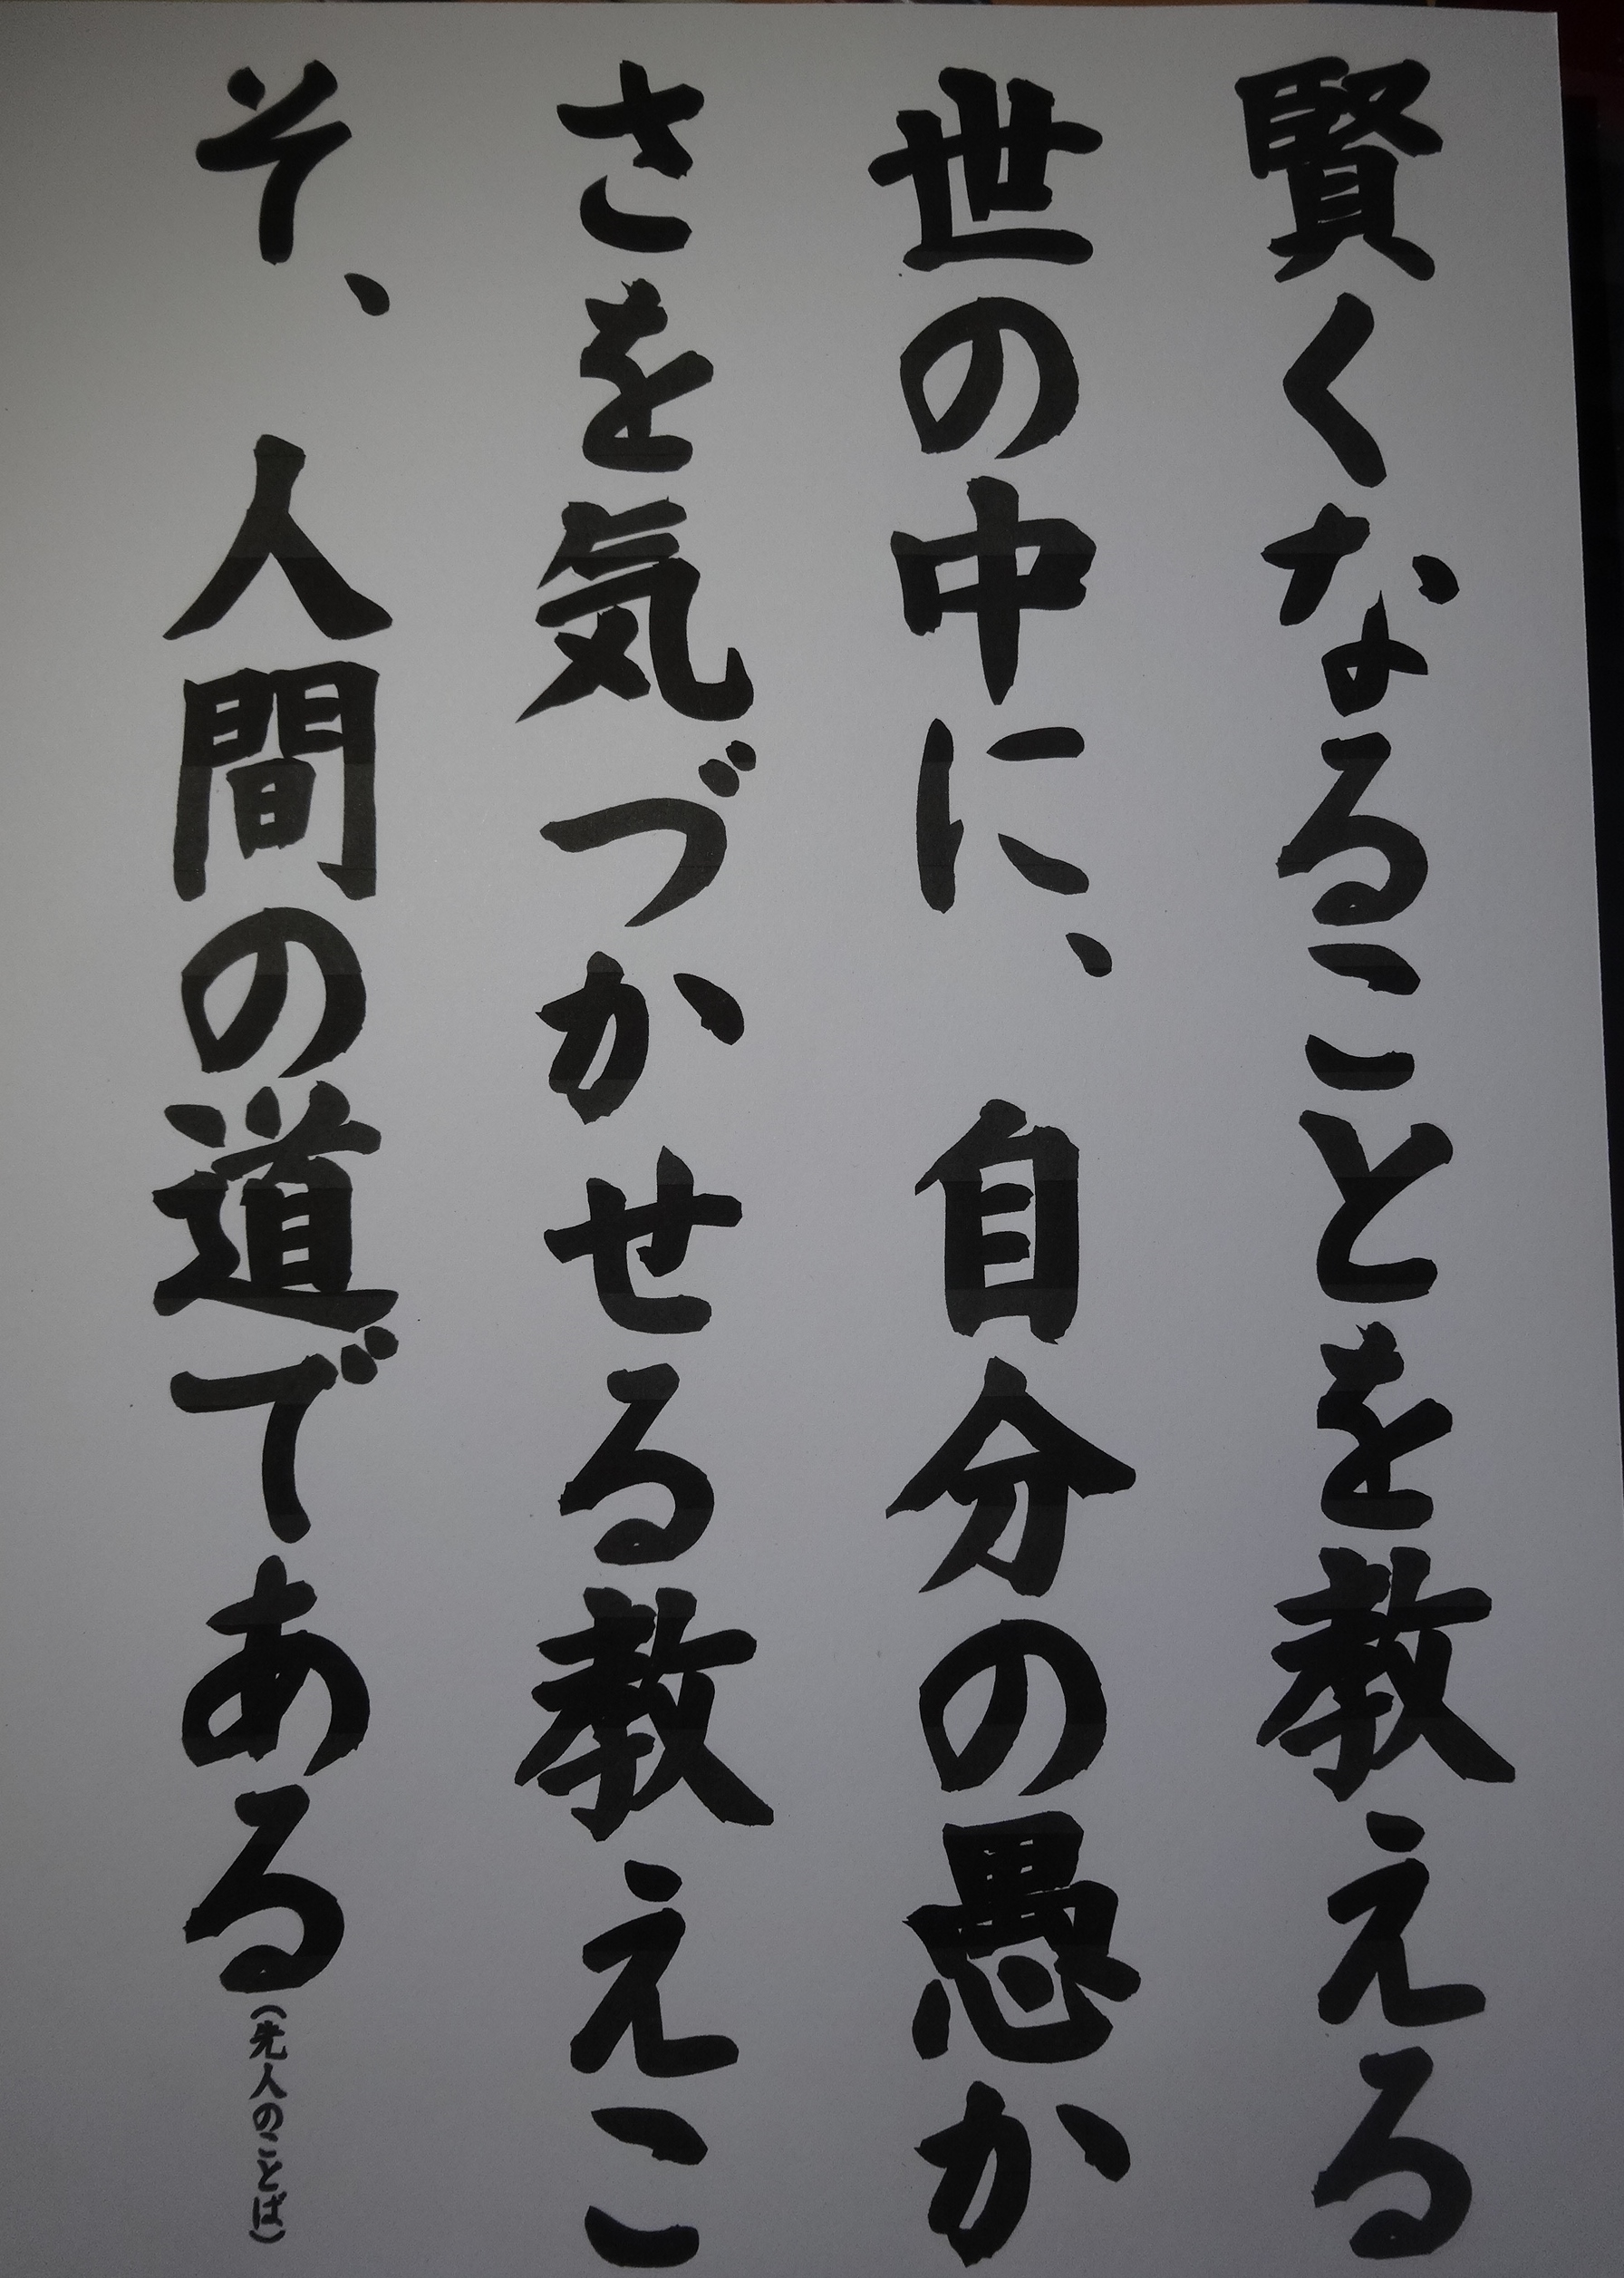 賢くなることを教える
世の中に、自分の愚か
さを気づかせる教えこ
そ、人間の道である（先人のことば）